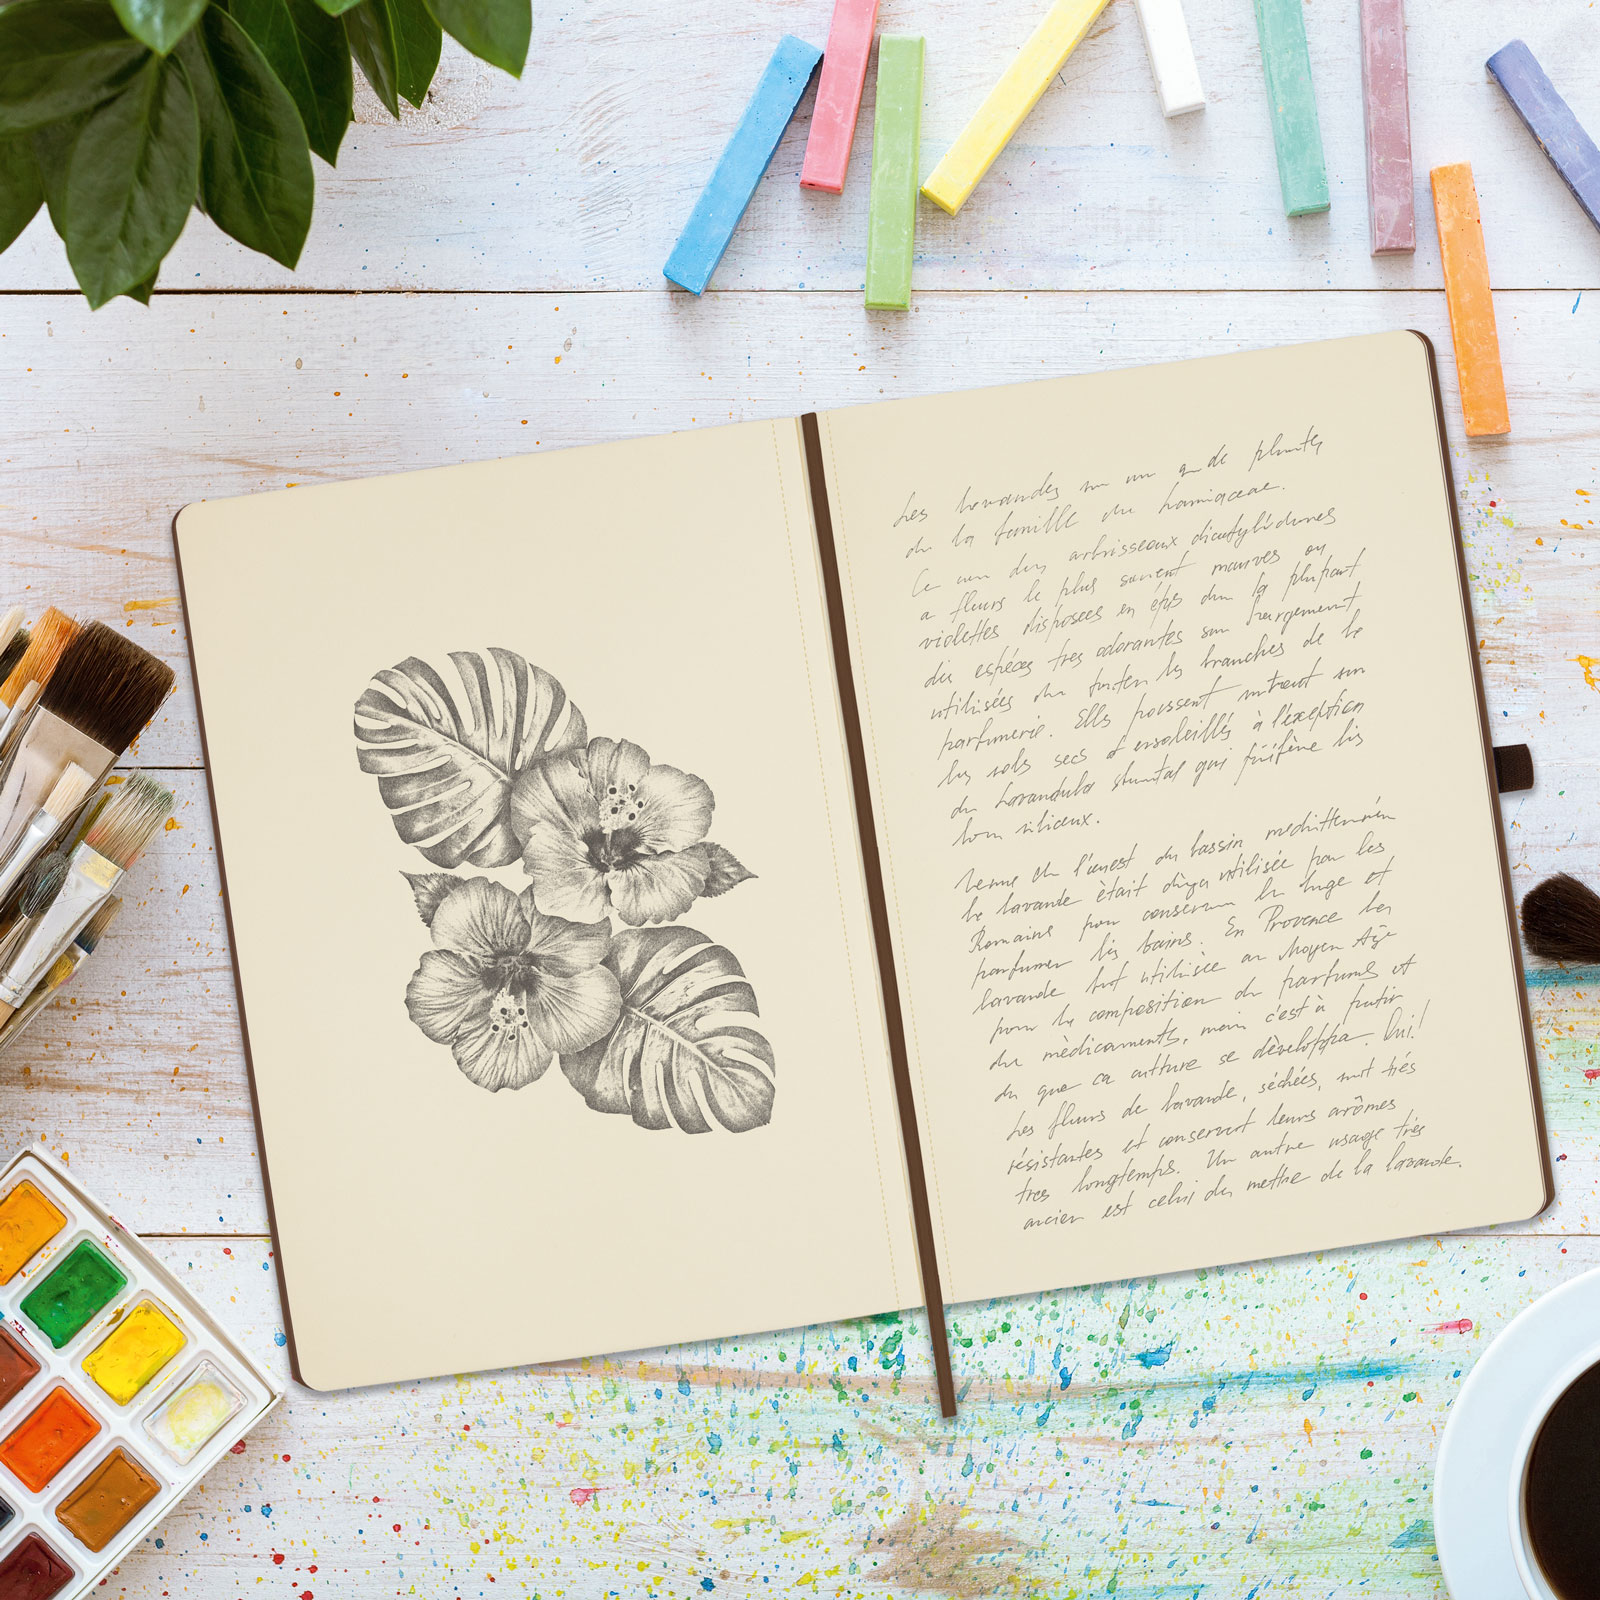 Les lavandes un de plantes
de la famille du Lamiaceae.
Ce arbrisseaux dicotylédones
a fleurs le plus souvent mauves ou
violettes disposées en épis la plupart
des espéces tres odorantes largement
utilisées les branches de la
parfumerie. Elles poussent
les sols secs et ensoleillés à l'exception
du Lavandula qui préfère les
siliceux.
l'ouest du bassin
la lavande ètait utilisée par les
Romains pour conserver le linge et
parfumer les bains. En Provence la
lavande fut utilisée au Moyen Age
pour la composition de parfums et
du mèdicaments, c'est à
que ca culture se dèveloppa. Oui!
Les fleurs de lavande, séchées, sont très
résistantes et conservent leurs arômes
tres longtemps. Un autre usage très
ancien est celui de mettre de la lavande.